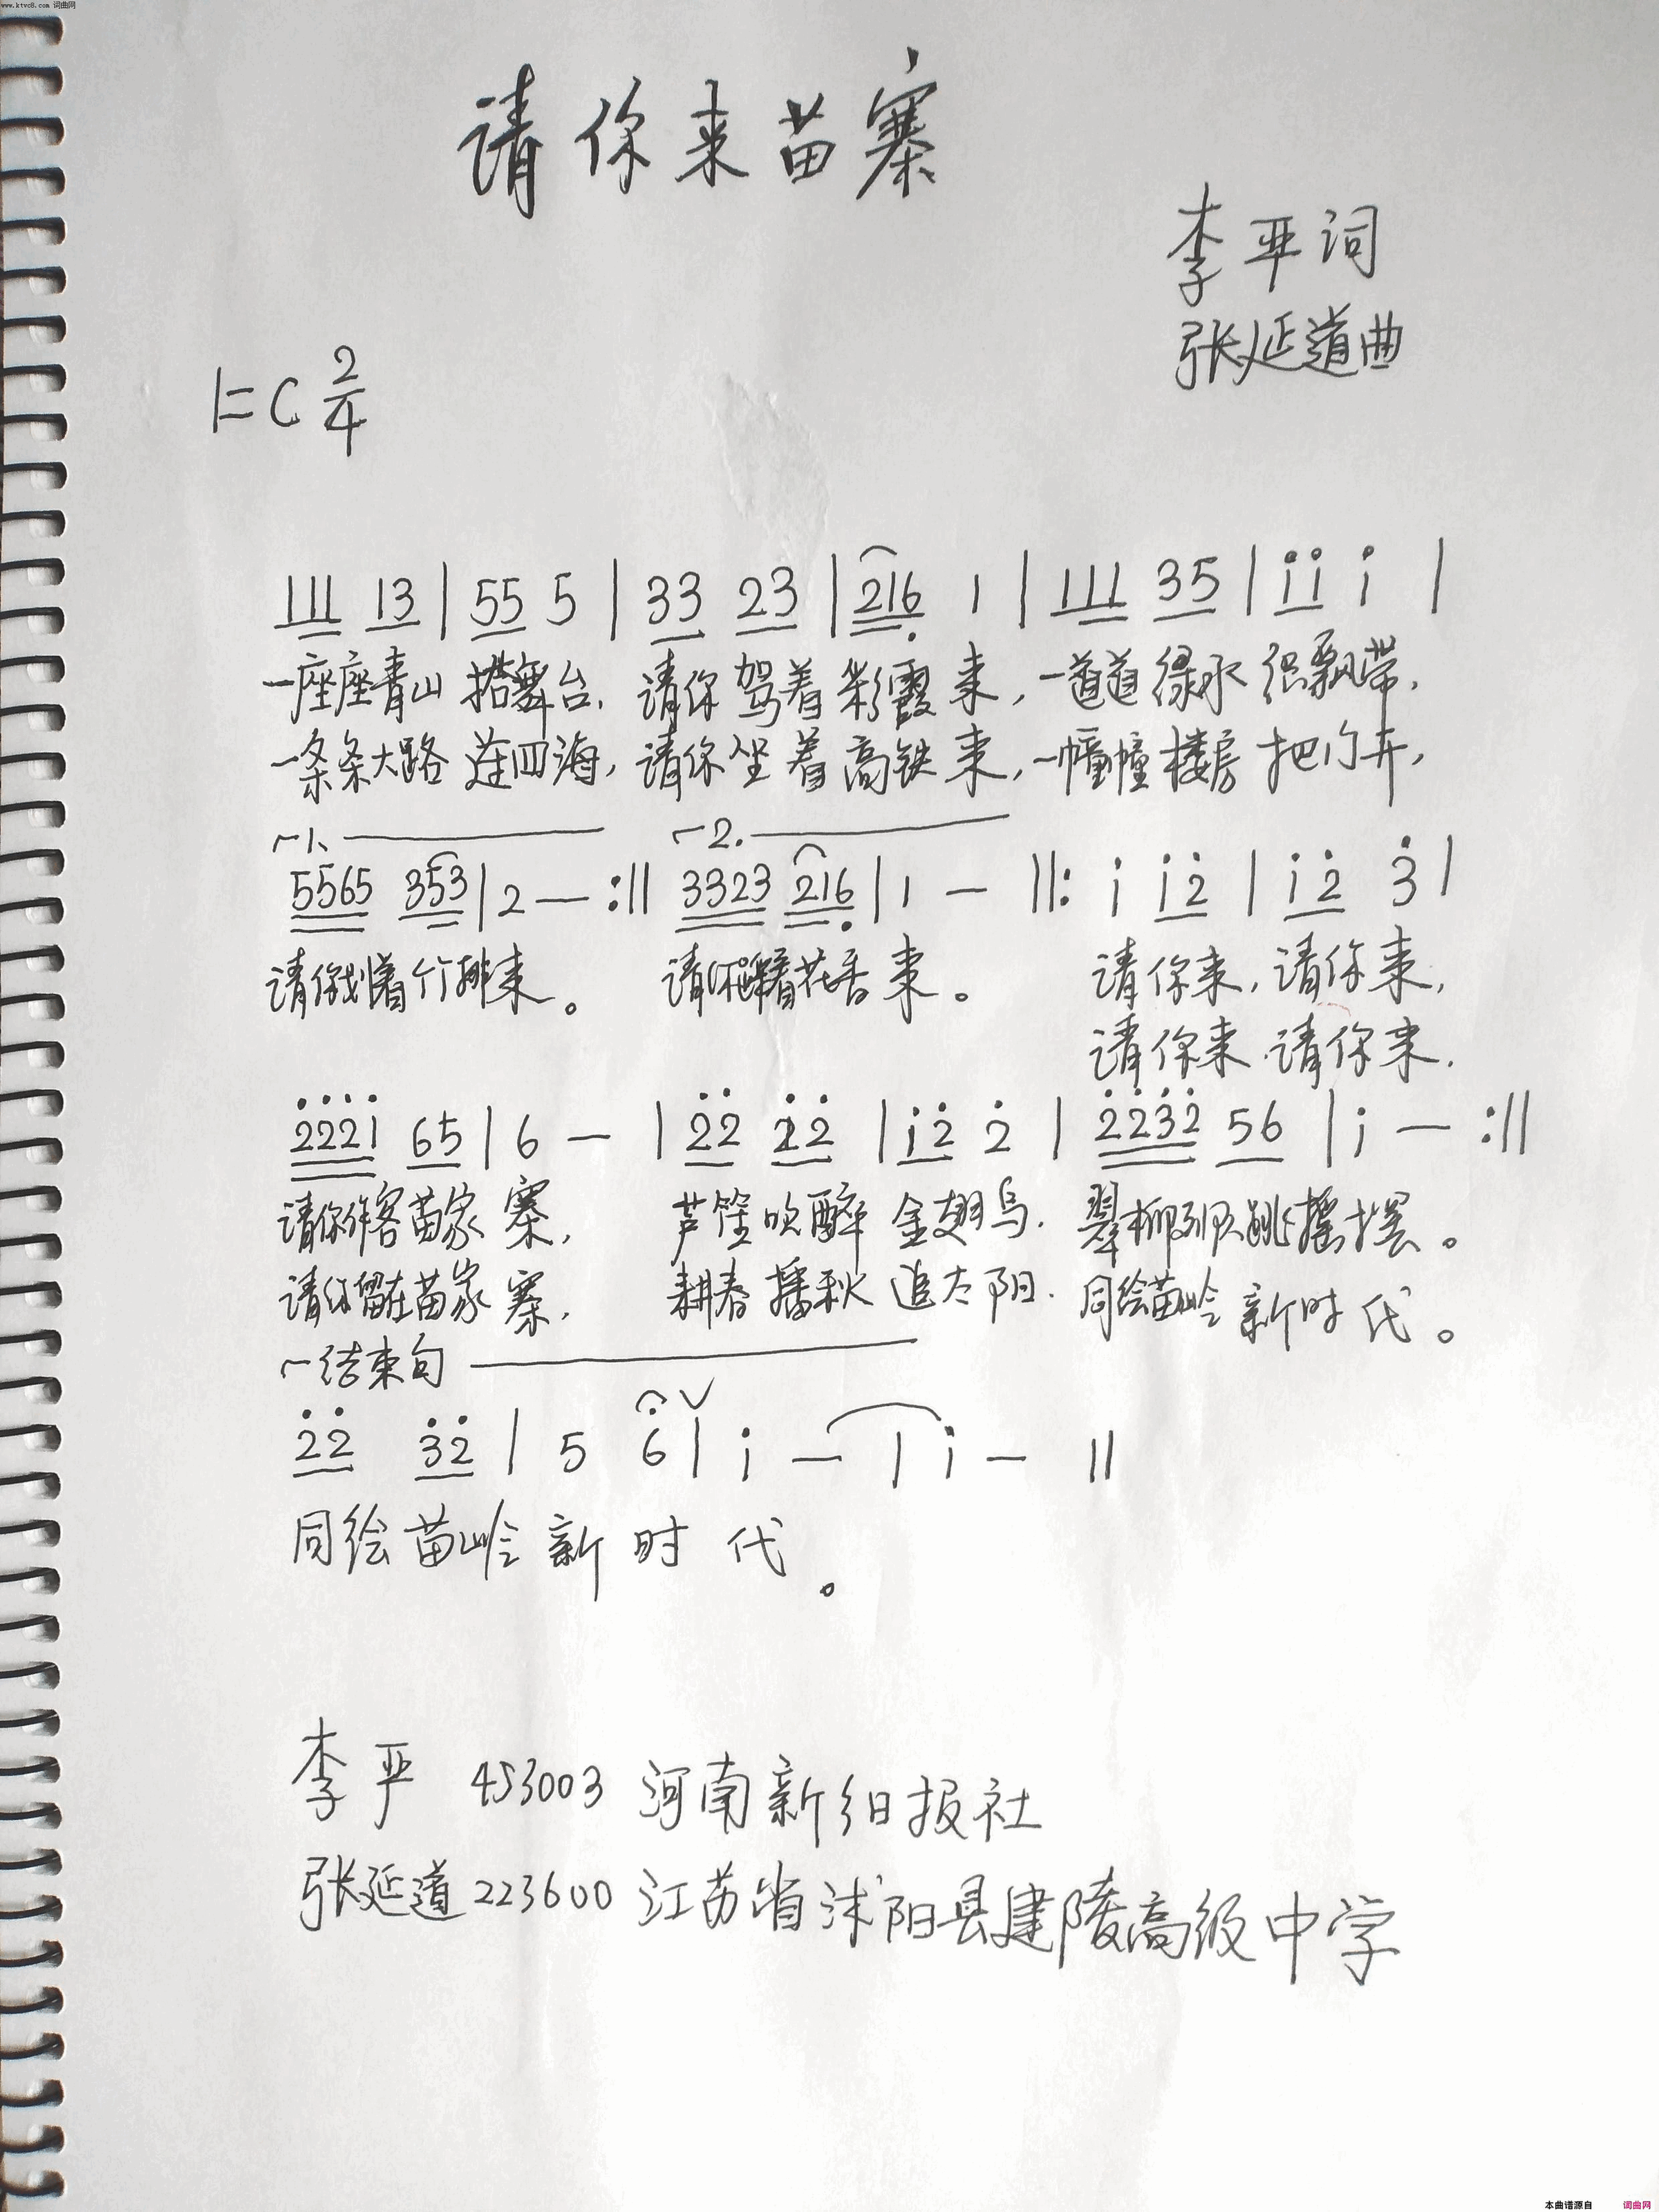 www.ktvc8.com 词曲网
请你来苗寨
李平词
张延道曲
1=C 2/4
111 13 | 55 5 | 33 23 | 216̣ 1 | 111 35 | i̇i̇ i̇ |
一座座青山 搭舞台, 请你驾着彩霞来, 一道道绿水织飘带,
一条条大路连四海, 请你坐着高铁来, 一幢幢楼房把门开,
1. 2.
5565 353 | 2 — :‖ 3323 216̣ | 1 — ‖: i̇ i̇2̇ | i̇2̇ 3̇ |
请你划着竹排来。 请你踏着花香来。 请你来, 请你来,
请你来, 请你来.
2̇2̇2̇i̇ 65 | 6 — | 2̇2̇ 2̇2̇ | i̇2̇ 2̇ | 2̇2̇3̇2̇ 56 | i̇ — :‖
请你作客苗家寨, 芦笙吹醉金翅鸟. 翠柳列队跳摇摆。
请你留在苗家寨, 耕春播秋追太阳. 同绘苗岭新时代。
结束句
2̇2̇ 3̇2̇ | 5 6 ∨ | i̇ — | i̇ — ‖
同绘苗岭新时代。
李平 453003 河南新乡日报社
张延道 223600 江苏省沭阳县建陵高级中学
本曲谱源自 词曲网